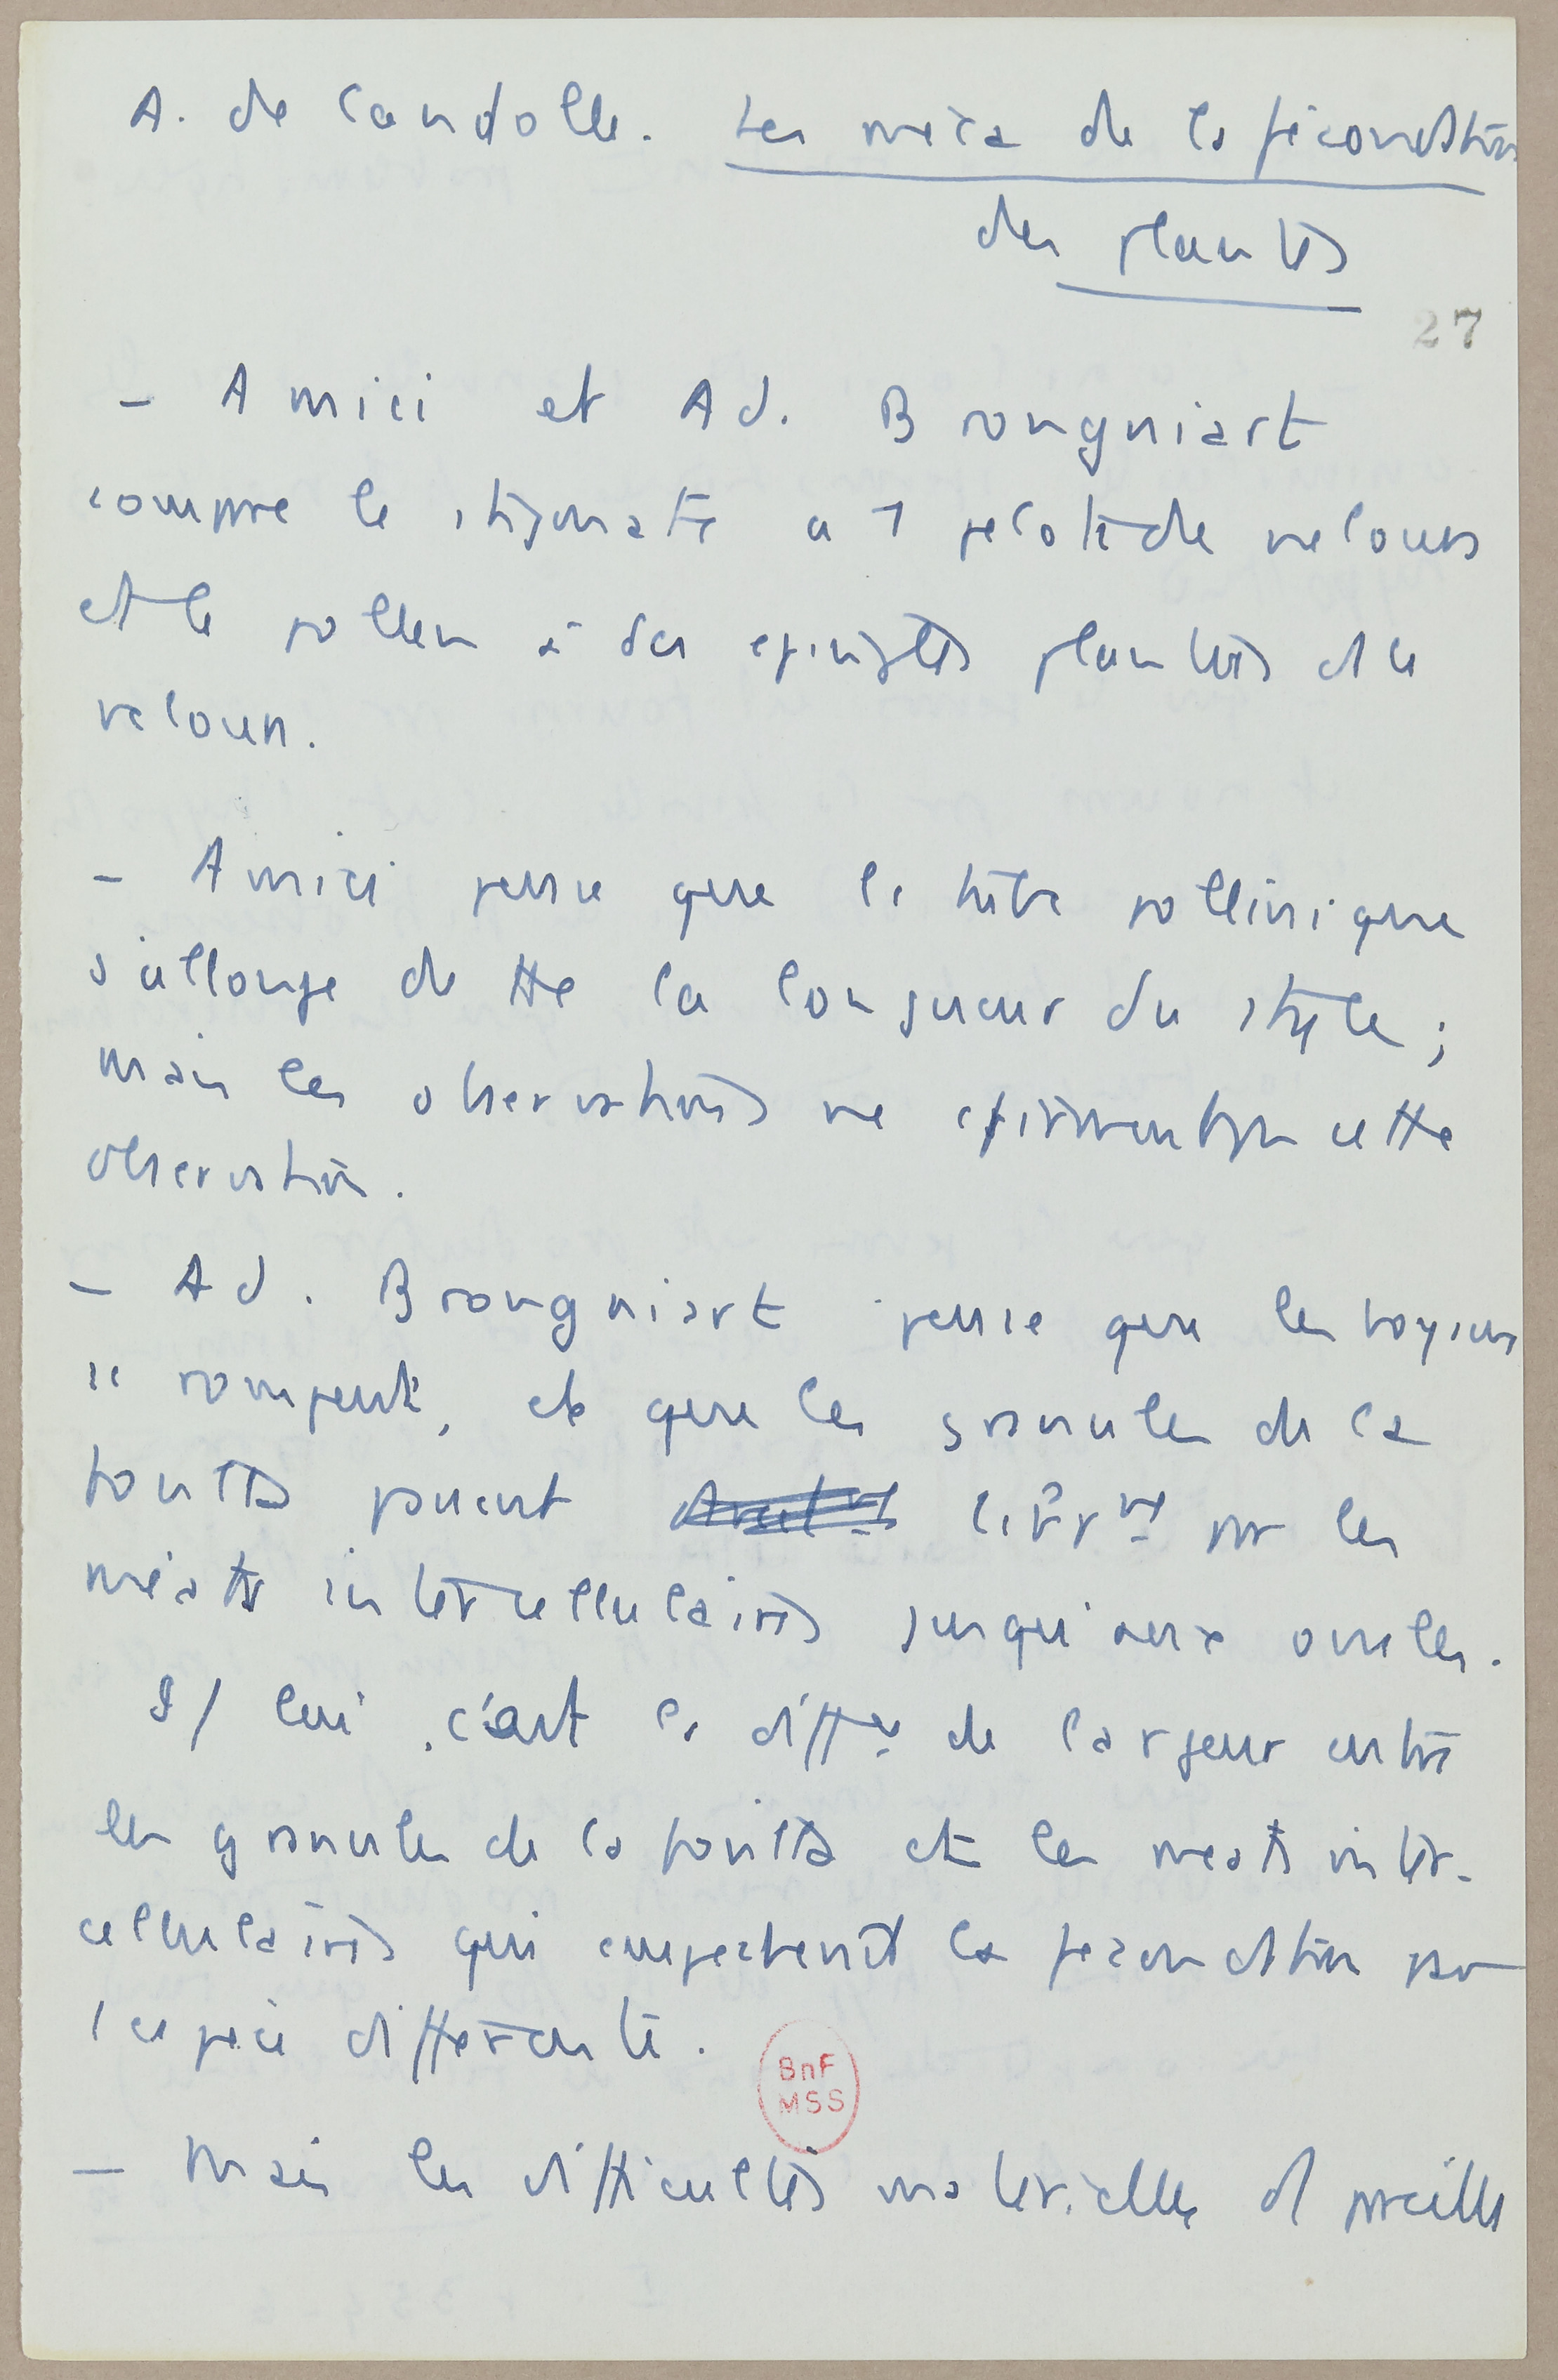 A. de Candolle. Les méca de la fécondation
des plantes
27
- Amici et Ad. Brongniart
compare le stigmate a 1 pelote de velours
et le pollen à des epingles plantées ds ce
velours.
- Amici pense que le tube pollinique
s'allonge de tte la longueur du style ;
mais les observations ne cfirment pas cette
observation.
- Ad. Brongniart pense que les boyaux
se rompent, et que les granules de la
fovilla passent librnt par les
méats intercellulaires jusqu'aux ovules.
S/ lui, c'est la diffce de largeur entre
les granules de la fovilla et les meats inter-
cellulaires qui empecherait la fecondation par
1 espèce différente.
BnF
MSS
- Mais les difficultés materielles ds pareille